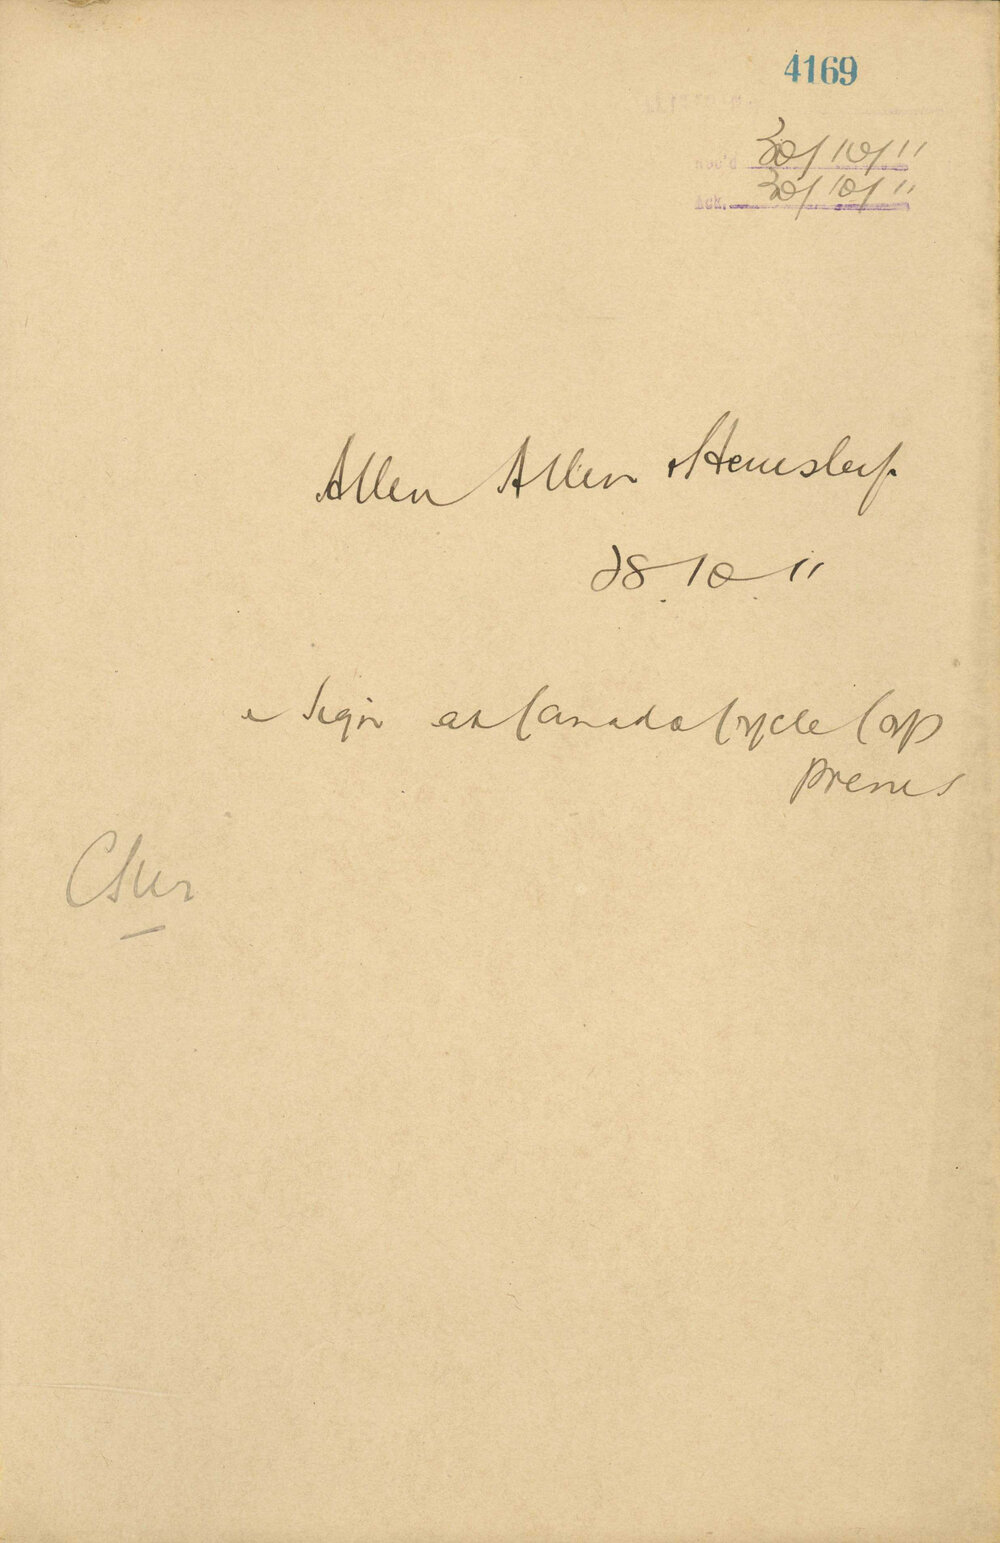 4169
Rec'd 30/10/11
Ack. 30/10/11
Allen Allen & Hemsley.
28.10.11
Sign at Canada Cycle Corp
prems